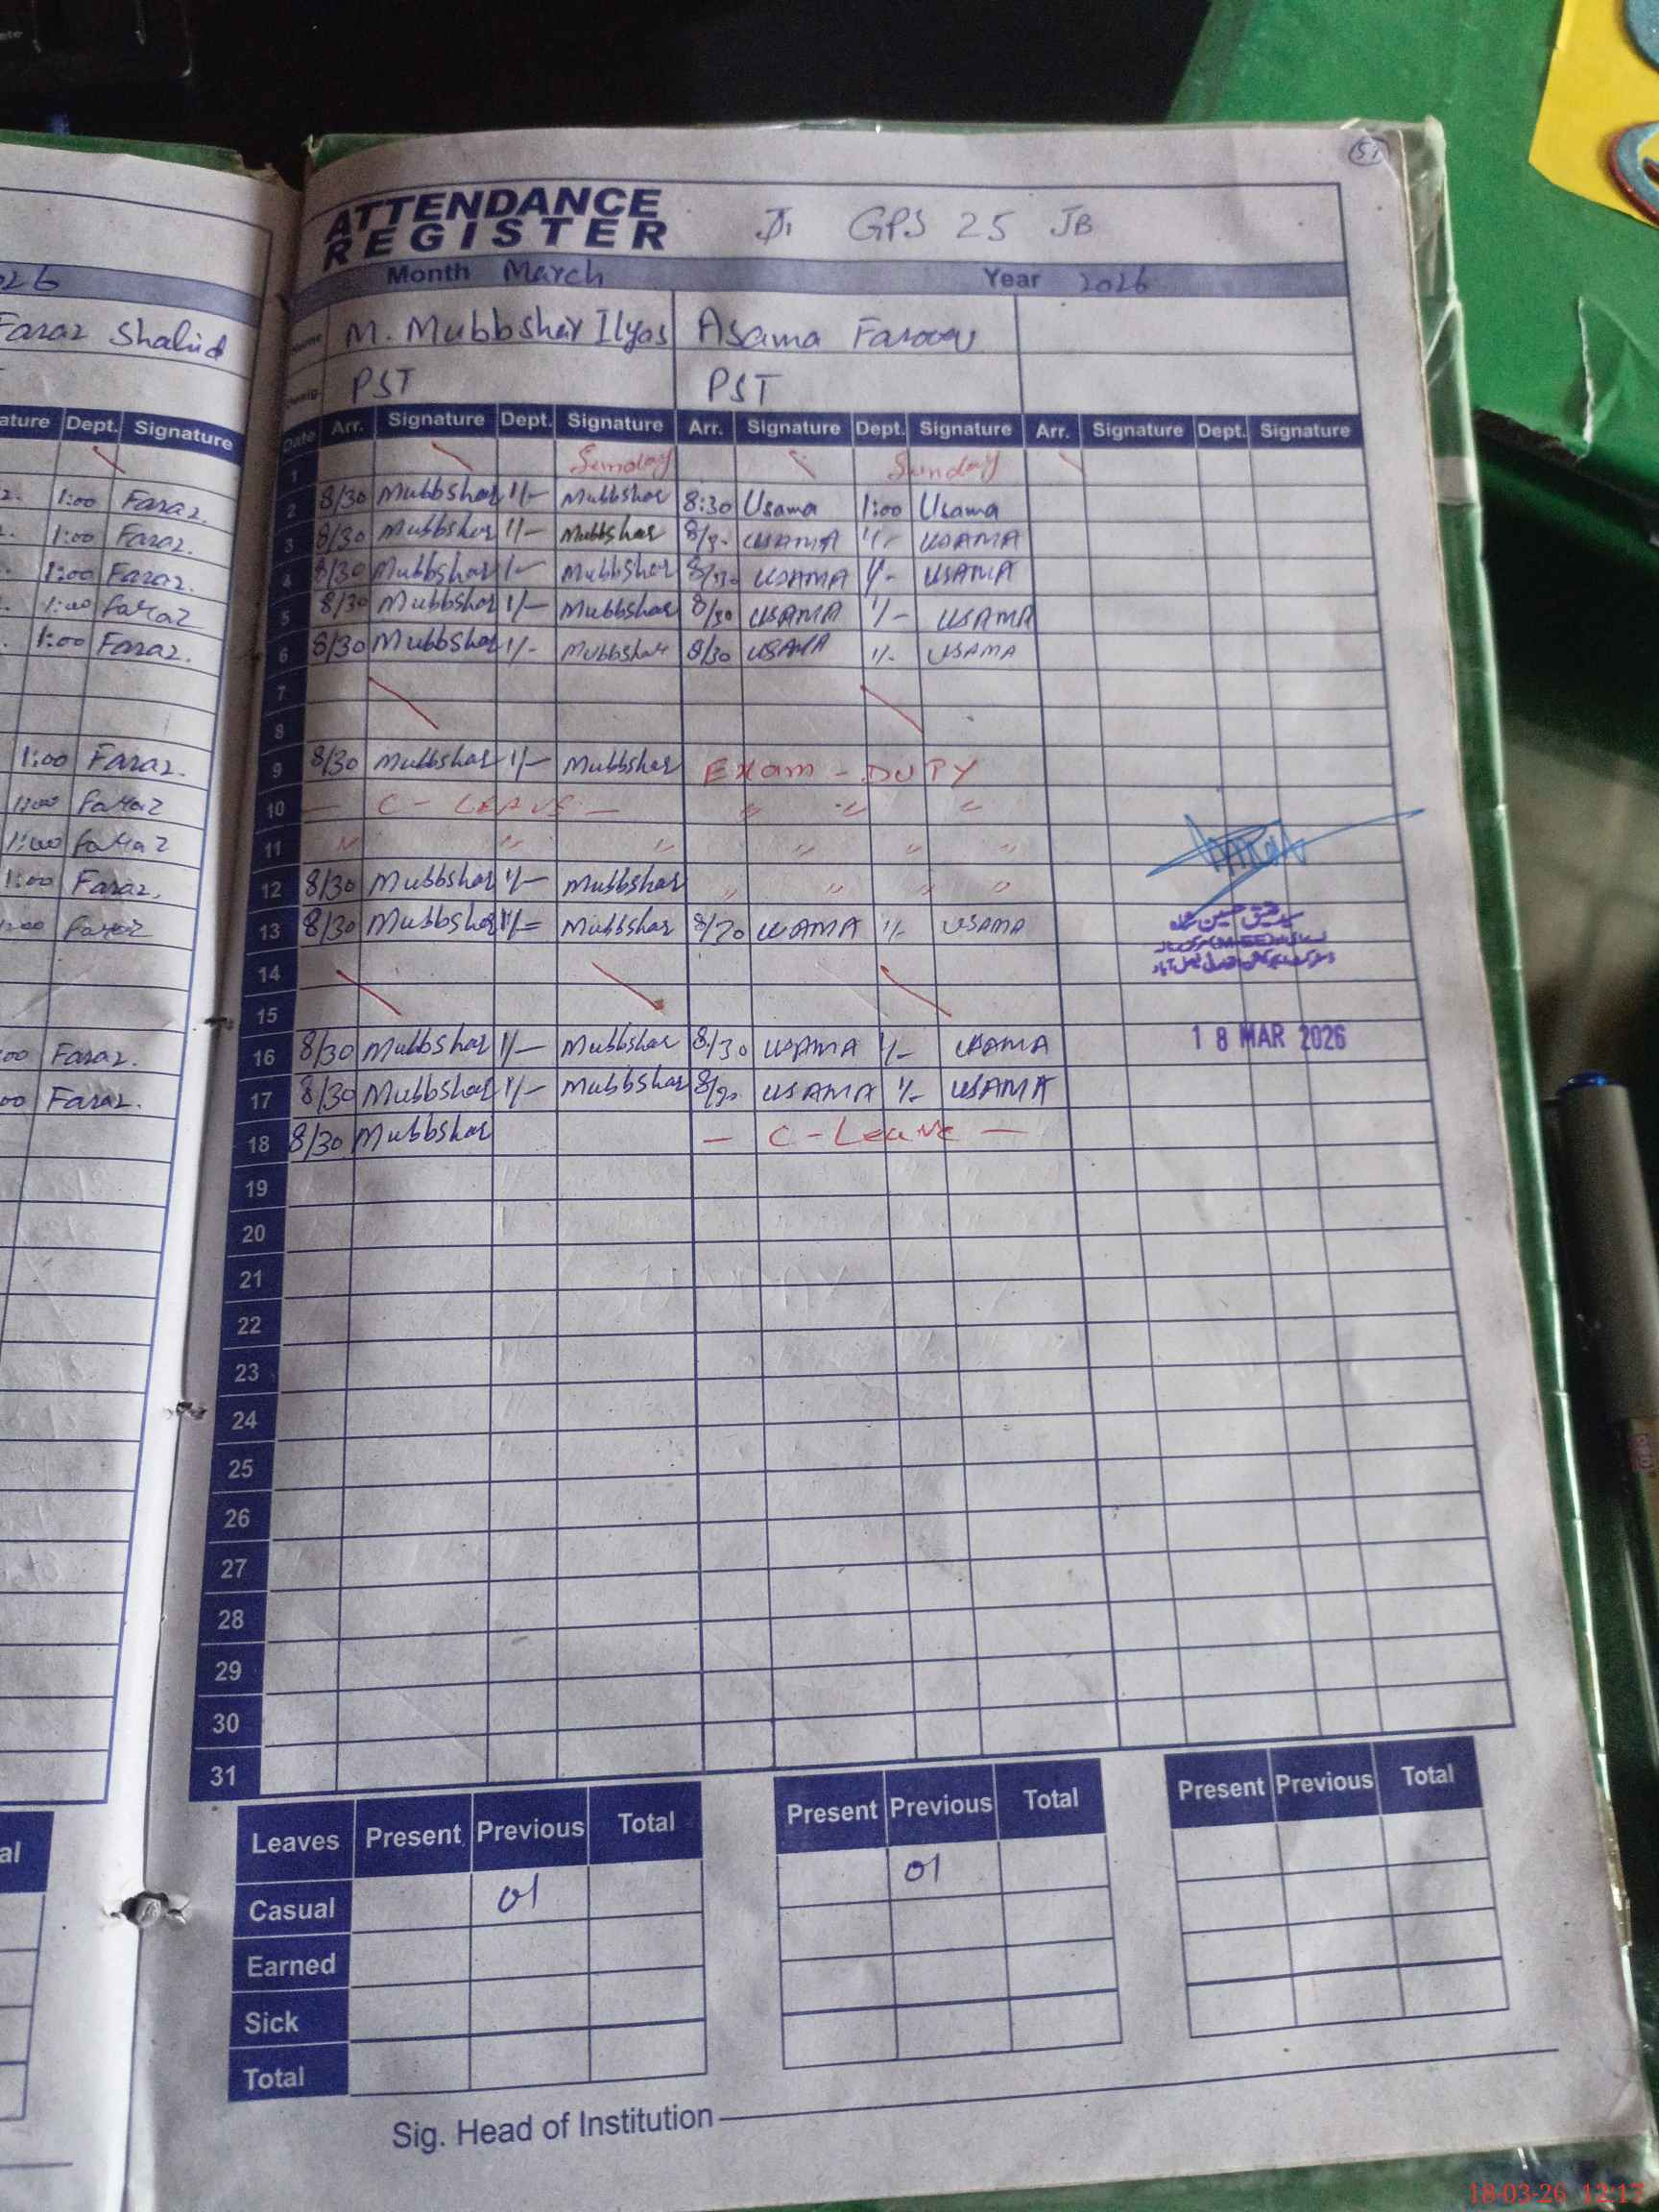 51
ATTENDANCE
REGISTER
GPS 25 JB
Month March Year 2026
Name M. Mubbshar Ilyas Asama Farooq
Desig. PST PST
Date Arr. Signature Dept. Signature Arr. Signature Dept. Signature Arr. Signature Dept. Signature
1 Sunday Sunday
2 8/30 Mubbshar 1/- Mubbshar 8:30 Usama 1:00 Usama
3 8/30 Mubbshar 1/- Mubbshar USAMA 1/- USAMA
4 8/30 Mubbshar 1/- Mubbshar 8/30 USAMA 1/- USAMA
5 8/30 Mubbshar 1/- Mubbshar 8/30 USAMA 1/- USAMA
6 8/30 Mubbshar 1/- Mubbshar 8/30 USAMA 1/- USAMA
7
8
9 8/30 Mubbshar 1/- Mubbshar Exam - DUTY
10 — C - LEAVE — " " "
11 " " " " " "
12 8/30 Mubbshar 1/- Mubbshar " " " "
13 8/30 Mubbshar 1/= Mubbshar USAMA 1/- USAMA
14
15
16 8/30 Mubbshar 1/- Mubbshar 8/30 USAMA 1/- USAMA
17 8/30 Mubbshar 1/- Mubbshar USAMA 1/- USAMA
18 8/30 Mubbshar — C - Leave —
19
20
21
22
23
24
25
26
27
28
29
30
31
18 MAR 2026
Leaves Present Previous Total Present Previous Total Present Previous Total
Casual 01 01
Earned
Sick
Total
Sig. Head of Institution
026
Faraz Shahid
ature Dept. Signature
1:00 Faraz.
1:00 Faraz.
1:00 Faraz.
1:00 Faraz
1:00 Faraz.
1:00 Faraz.
1:00 Faraz
1:00 Faraz
1:00 Faraz.
1:00 Faraz
00 Faraz.
00 Faraz.
al
18-03-26 12:17